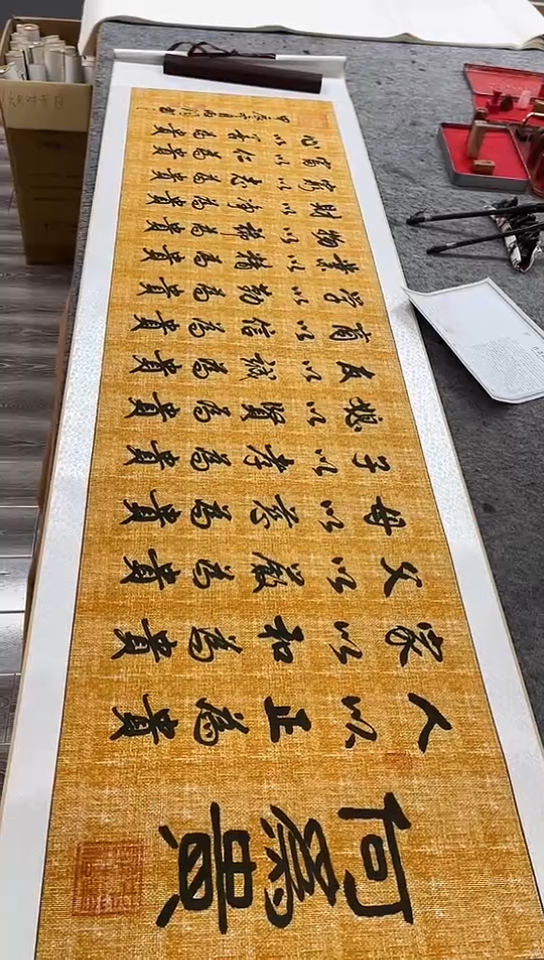 何為貴
人以正為貴
家以和為貴
父以嚴為貴
母以慈為貴
子以孝為貴
媳以賢為貴
友以誠為貴
商以信為貴
学以勤為貴
業以精為貴
物以稀為貴
財以淨為貴
窮以志為貴
富以仁為貴
心以善為貴
甲辰